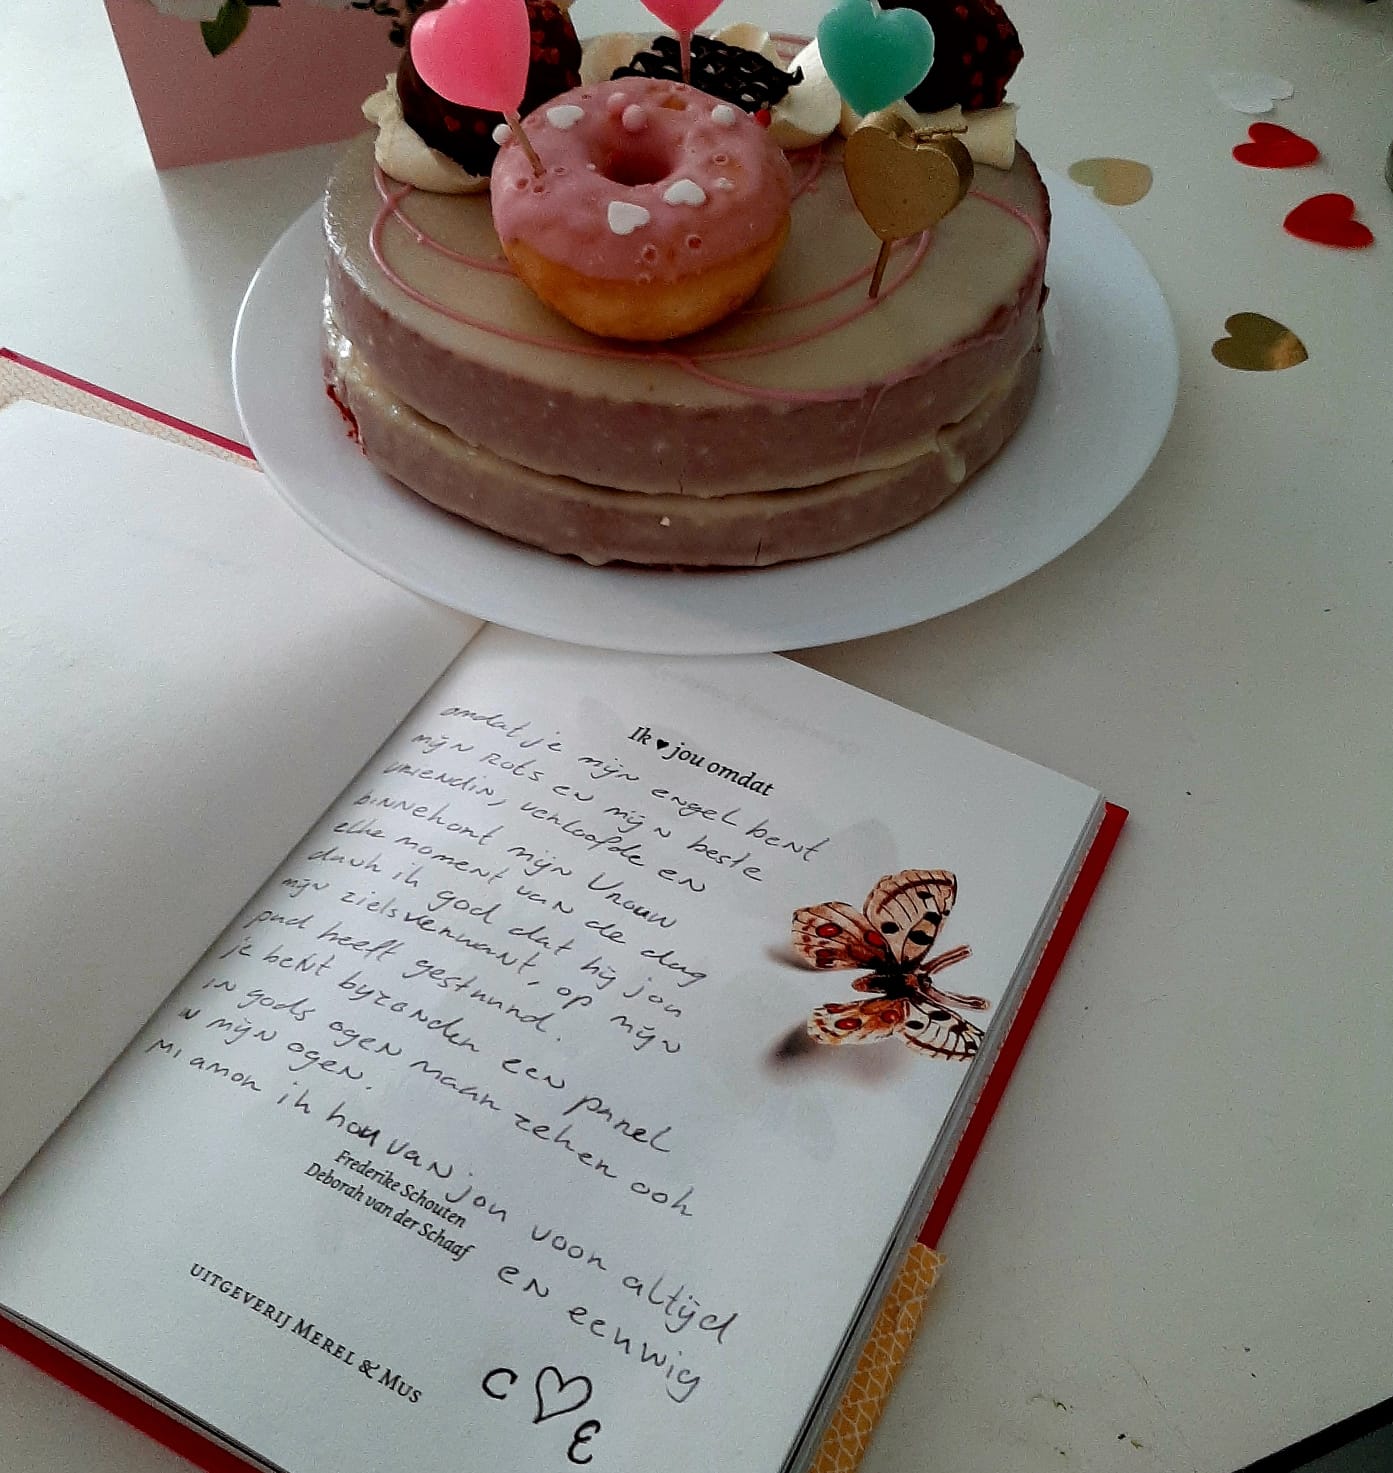 Ik ♥ jou omdat
omdat je mijn engel bent
mijn rots en mijn beste
vriendin, verloofde en
binnekort mijn vrouw
elke moment van de dag
dank ik god dat hij jou
mijn zielsverwant, op mijn
pad heeft gestuurd.
je bent byzonder een parel
in gods ogen maar zeker ook
in mijn ogen.
Mi amor ik hou van jou voor altijd
en eeuwig
Frederike Schouten
Deborah van der Schaaf
C ♡ E
UITGEVERIJ MEREL & MUS